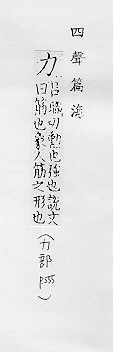 四聲篇海
力
呂職切勲也強也說文
曰筋也象人筋之形也
(力部
P555)